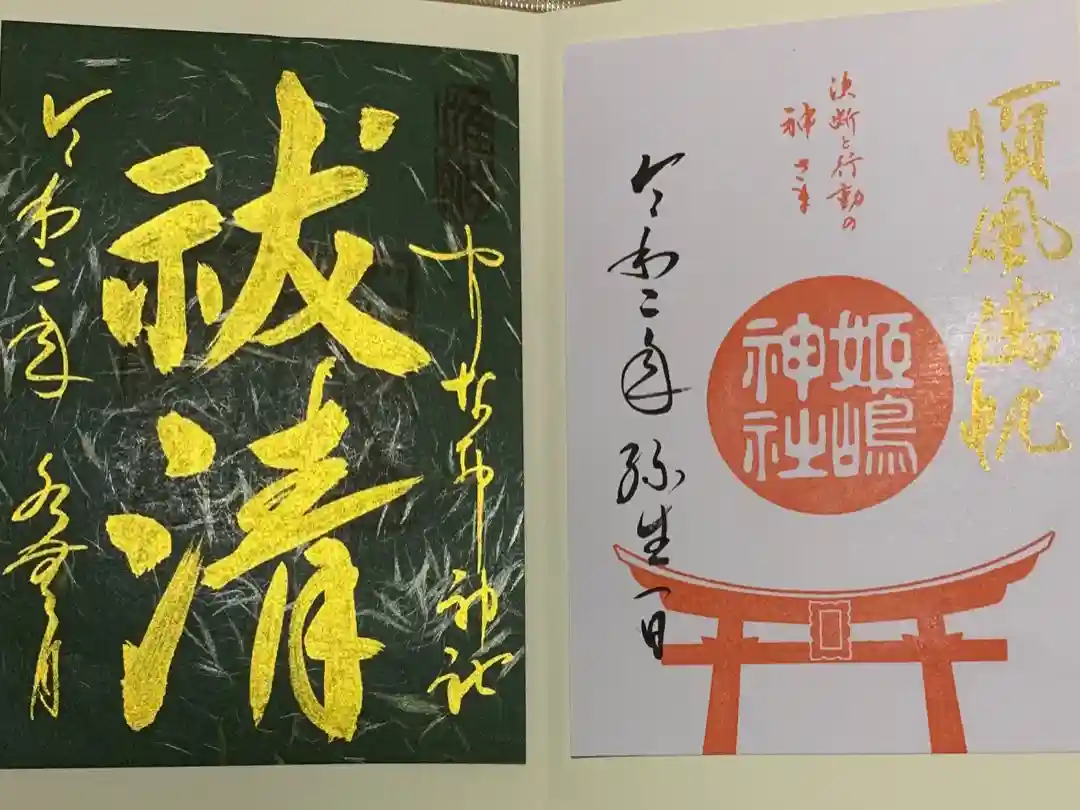 順風満帆
決断と行動の
神さま
姫嶋
神社
令和二年弥生一日
神社
祓清
令和二年 水無月